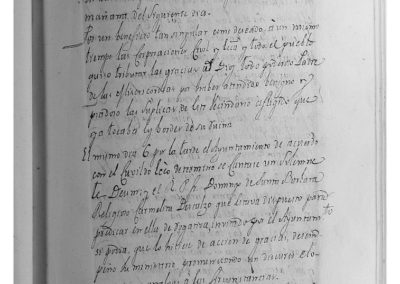 mañana del siguiente dia.
Por un beneficio tan singular como deseado, à un mismo
tiempo las corporaciones Civil y Ecca y todo el pueblo
quiso tributar las gracias al Dios todo poderoso Padre
de las misericordias por haber atendido benigno y
piadoso las suplicas de este vecindario afligido que
ya tocaba los bordes de su ruina
El mismo dia 6 por la tarde el Ayuntamiento de acuerdo
con el Cavildo Ecco determino se cantase un solemne
Te Deum, y el R. P. Fr. Domingo de Santa Barbara
Religioso Carmelita Descalzo que estava dispuesto para
predicar en ella de rogativa, invitado por el Ayuntamto
se postra, que lo hiciese de accion de gracias, desem-
peño su ministerio, pronunciando un discurso elo-
a las circunstancias.